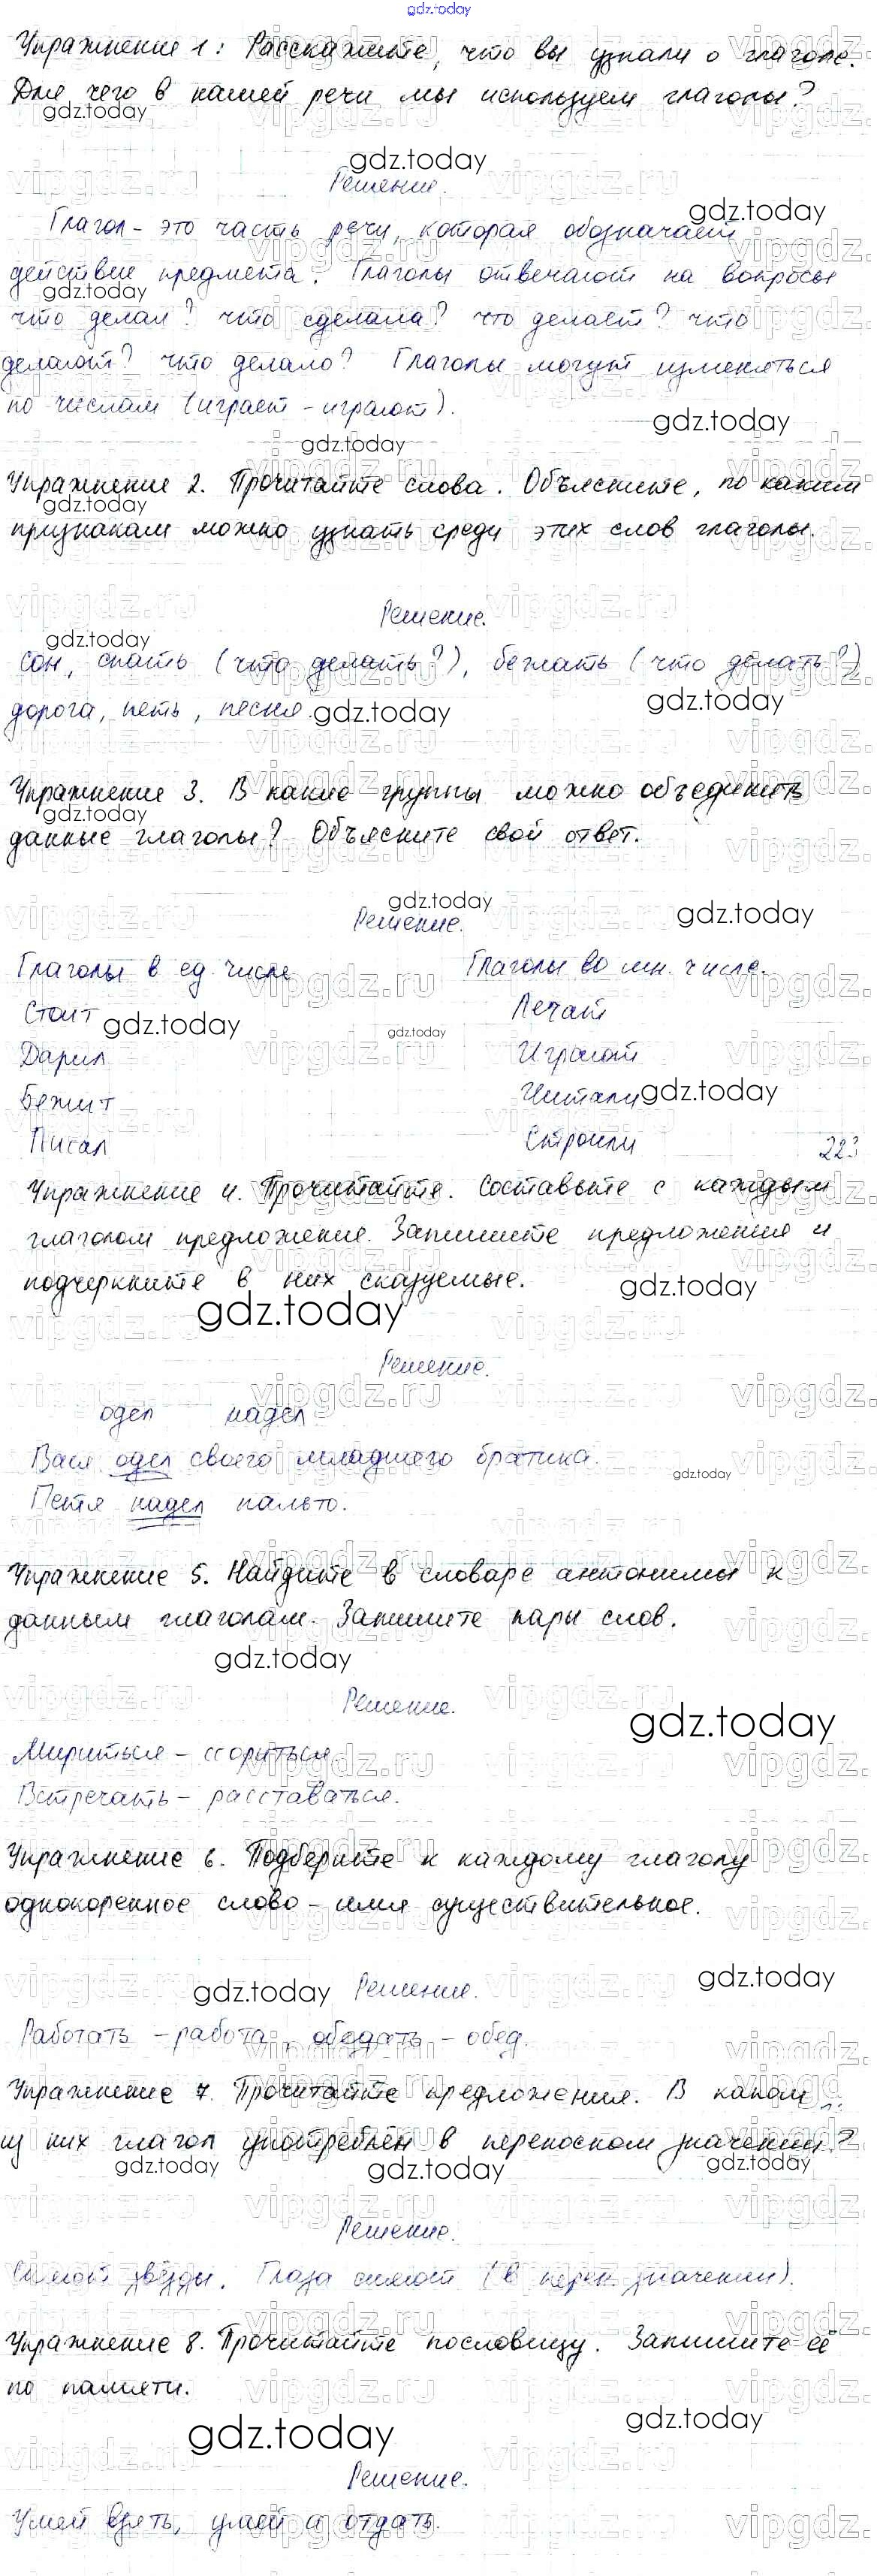 gdz.today
Упражнение 1: Расскажите, что вы узнали о глаголе.
Для чего в нашей речи мы используем глаголы?
Решение.
Глагол - это часть речи, которая обозначает
действие предмета. Глаголы отвечают на вопросы
что делал? что сделала? что делает? что
делают? что делало? Глаголы могут изменяться
по числам (играет - играют).
Упражнение 2. Прочитайте слова. Объясните, по каким
признакам можно узнать среди этих слов глаголы.
Решение.
Сон, спать (что делать?), бежать (что делать?)
дорога, петь, песня.
Упражнение 3. В какие группы можно объединить
данные глаголы? Объясните свой ответ.
Решение.
Глаголы в ед. числе Глаголы во мн. числе.
Стоит Лечат
Дарил Играют
Бежит Читали
Писал Строили 223
Упражнение 4. Прочитайте. Составьте с каждым
глаголом предложение. Запишите предложения и
подчеркните в них сказуемые.
Решение.
одел надел
Вася одел своего младшего братика.
Петя надел пальто.
Упражнение 5. Найдите в словаре антонимы к
данным глаголам. Запишите пары слов.
Решение.
Мириться - ссориться.
Встречать - расставаться.
Упражнение 6. Подберите к каждому глаголу
однокоренное слово - имя существительное.
Решение.
Работать - работа, обедать - обед.
Упражнение 7. Прочитайте предложения. В каком
из них глагол употреблён в переносном значении?
Решение.
Сияют звёзды. Глаза сияют (в перен. значении).
Упражнение 8. Прочитайте пословицу. Запишите её
по памяти.
Решение.
Умей взять, умей и отдать.